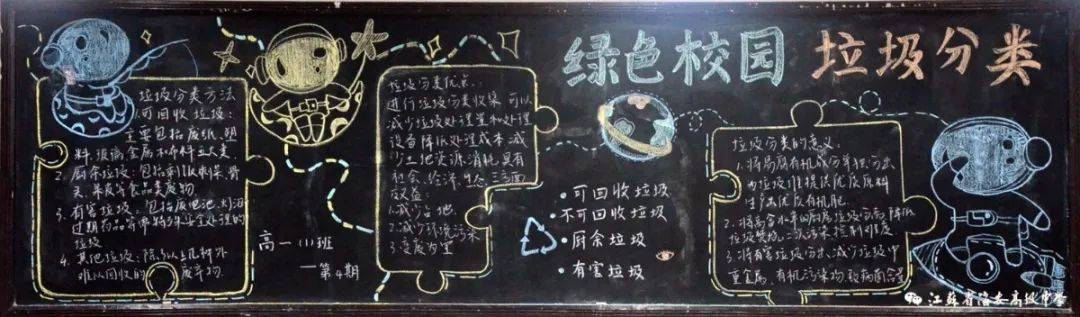 绿色校园 垃圾分类
垃圾分类方法
1.可回收垃圾:
主要包括废纸、塑
料、玻璃、金属和布料五大类
2.厨余垃圾:包括剩饭剩菜、骨
头、菜根等食品类废物
3.有害垃圾:包括废电池、
过期药品等需特殊安全处理的
垃圾
4.其他垃圾:除以上几类外
难以回收的废弃物.
高一(1)班
—第4期
垃圾分类优点:
进行垃圾分类收集可以
减少垃圾处理量和处理
设备降低处理成本减
少土地资源消耗具有
社会、经济、生态三方面
效益:
1.减少占地
2.减少环境污染
3.变废为宝
•可回收垃圾
•不可回收垃圾
•厨余垃圾
•有害垃圾
垃圾分类的意义:
1.将易腐有机成分单独分出,
为垃圾堆提供优质原料
生产品优质有机肥
2.将高含水率的厨余垃圾分离,降低
垃圾焚烧二次污染控制难度
3.将有害垃圾分出,减少垃圾中
重金属、有机污染物、致病菌含量
江苏省海安高级中学